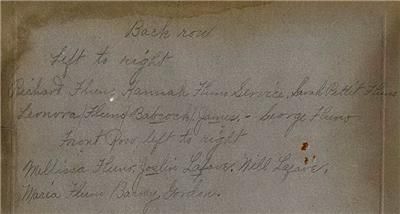 Back row
Left to right
Richard Fluno, Hannah Fluno Service, Sarah Pettit Fluno
Leonora (Fluno) Babcock, James, - George Fluno
Front Row, left to right
Mellissa Fluno, Joslin Lafave, Will Lafave,
Maria Fluno Barney Gordon.